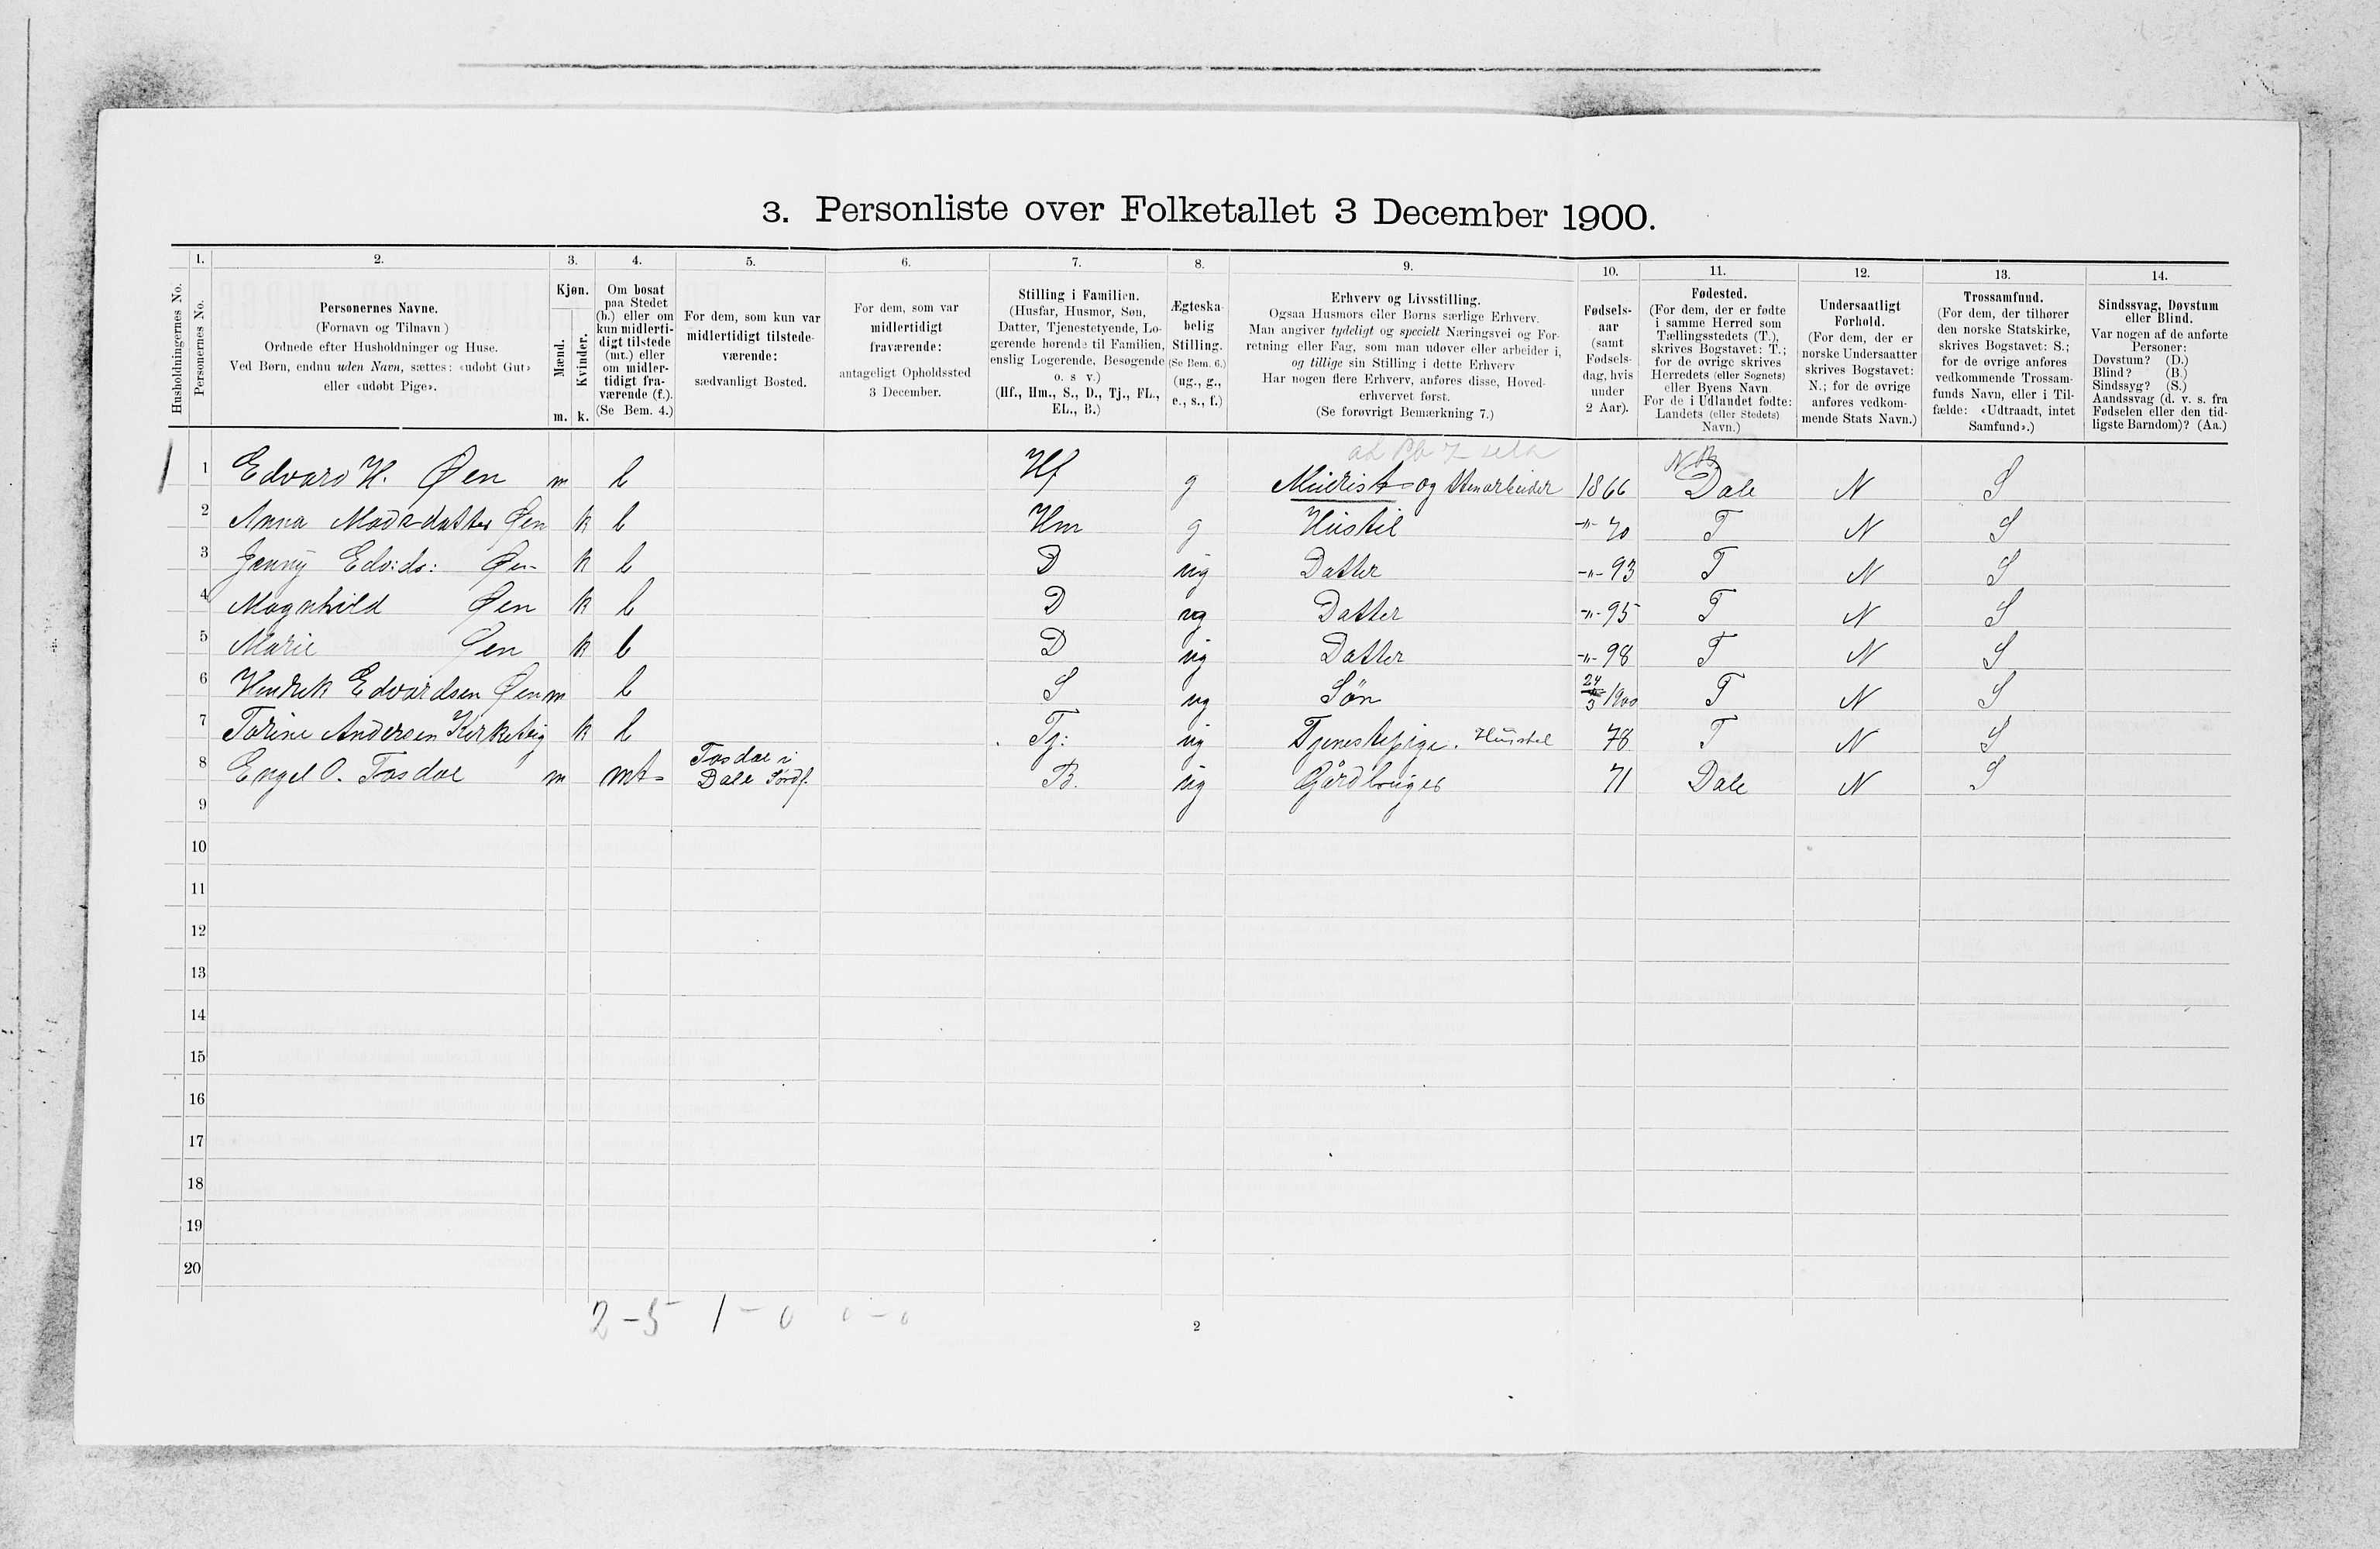 3. Personliste over Folketallet 3 December 1900.
1. 2. 3. 4. 5. 6. 7. 8. 9. 10. 11. 12. 13. 14.
Husholdningernes No.
Personernes No.
Personernes Navne.
(Fornavn og Tilnavn)
Ordnede efter Husholdninger og Huse.
Ved Børn, endnu uden Navn, sættes: «udøbt Gut»
eller «udøbt Pige».
Kjøn.
Mænd.
Kvinder.
m. k.
Om bosat
paa Stedet
(b.) eller om
kun midlerti-
digt tilstede
(mt.) eller
om midler-
tidigt fra-
værende (f.).
(Se Bem. 4.)
For dem, som kun var
midlertidigt tilstede-
værende:
sædvanligt Bosted.
For dem, som var
midlertidigt
fraværende:
antageligt Opholdssted
3 December.
Stilling i Familien.
(Husfar, Husmor, Søn,
Datter, Tjenestetyende, Lo-
gerende hørende til Familien,
enslig Logerende, Besøgende
o. s v.)
(Hf., Hm., S., D., Tj., FL.,
EL., B.)
Ægteska-
belig
Stilling.
(Se Bem. 6.)
(ug., g.,
e., s., f.)
Erhverv og Livsstilling.
Ogsaa Husmors eller Børns særlige Erhverv.
Man angiver tydeligt og specielt Næringsvei og For-
retning eller Fag, som man udøver eller arbeider i,
og tillige sin Stilling i dette Erhverv
Har nogen flere Erhverv, anføres disse, Hoved-
erhvervet først.
(Se forøvrigt Bemærkning 7.)
Fødsels-
aar
(samt
Fødsels-
dag, hvis
under
2 Aar).
Fødested.
(For dem, der er fødte
i samme Herred som
Tællingsstedets (T.),
skrives Bogstavet: T.;
for de øvrige skrives
Herredets (eller Sognets)
eller Byens Navn.
For de i Udlandet fødte:
Landets (eller Stedets)
Navn.)
Undersaatligt
Forhold.
(For dem, der er
norske Undersaatter
skrives Bogstavet:
N.; for de øvrige
anføres vedkom-
mende Stats Navn.)
Trossamfund.
(For dem, der tilhører
den norske Statskirke,
skrives Bogstavet: S.;
for de øvrige anføres
vedkommende Trossam-
funds Navn, eller i Til-
fælde: «Udtraadt, intet
Samfund».)
Sindssvag, Døvstum
eller Blind.
Var nogen af de anførte
Personer:
Døvstum? (D.)
Blind? (B.)
Sindssyg? (S.)
Aandssvag (d. v. s. fra
Fødselen eller den tid-
ligste Barndom)? (Aa.)
1 1 Edvard H. Øen m b Hf g Murist og Stenarbeider 1866 Dale N S
2 Anna Madsdatter Øen k b Hm g Husstel -"- 70 T N S
3 Jenny Edv:ds: Øen k b D ug Datter -"- 93 T N S
4 Magnhild Øen k b D ug Datter -"- 95 T N S
5 Marie Øen k b D ug Datter -"- 98 T N S
6 Hendrik Edvardsen Øen m b S ug Søn 24/3 1900 T N S
7 Torine Andersen Kirketeig k b Tj: ug Tjenestepige. Husstel 78 T N S
8 Engel O. Tosdal m mt Tosdal i Dale Søndf. B. ug Gårdbruger 71 Dale N S
9
10
11
12
13
14
15
16
17
18
19
20
2-5 1-0 0-0
2